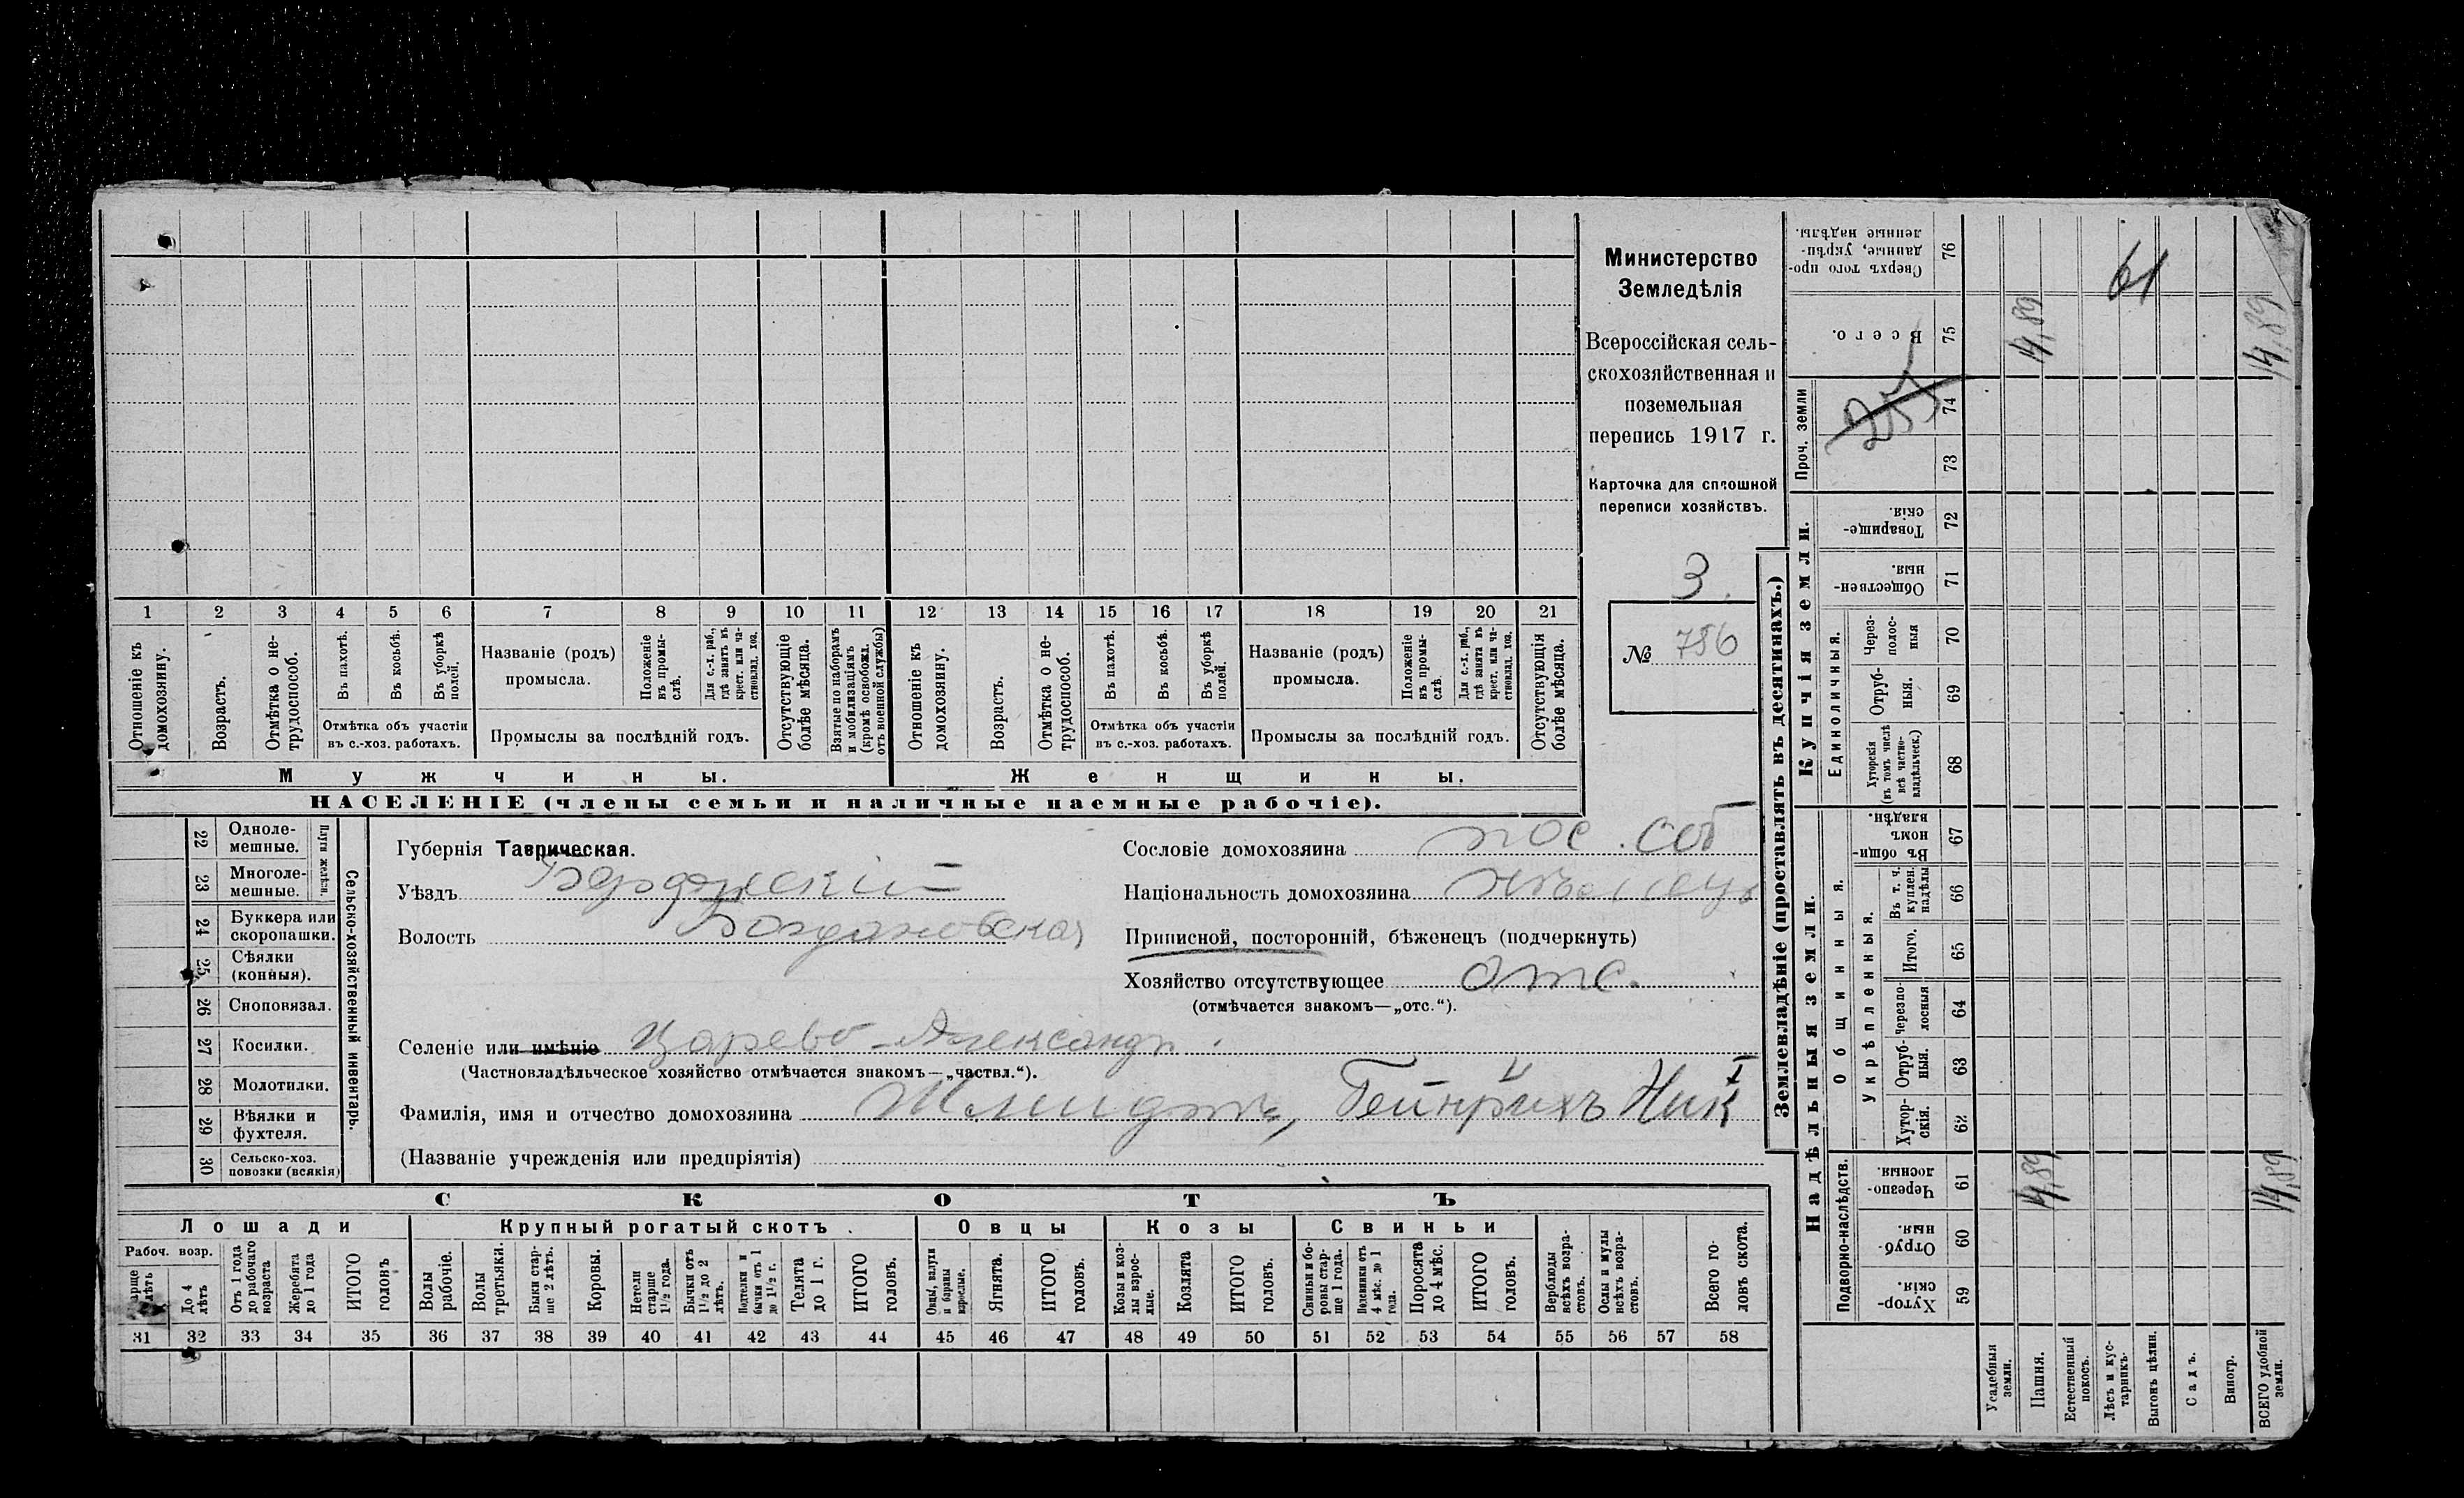 Министерство
Земледѣлія
Всероссійская сель-
скохозяйственная и
поземельная
перепись 1917 г.
Карточка для сплошной
переписи хозяйствъ.
3.
№ 786
1 2 3 4 5 6 7 8 9 10 11 12 13 14 15 16 17 18 19 20 21
Отношеніе къ домохозяину.
Возрастъ.
Отмѣтка о не-трудоспособ.
Въ пахотѣ.
Въ косьбѣ.
Въ уборкѣ полей.
Отмѣтка объ участіи
въ с.-хоз. работахъ.
Названіе (родъ)
промысла.
Положеніе въ промы-слѣ.
Для с.-х. раб., гдѣ занятъ въ крест. или ча-стновлад. хоз.
Промыслы за послѣдній годъ.
Отсутствующіе болѣе мѣсяца.
Взятые по наборамъ и мобилизаціямъ (кромѣ освобожд. отъ военной службы)
Отношеніе къ домохозяину.
Возрастъ.
Отмѣтка о не-трудоспособ.
Въ пахотѣ.
Въ косьбѣ.
Въ уборкѣ полей.
Отмѣтка объ участіи
въ с.-хоз. работахъ.
Названіе (родъ)
промысла.
Положеніе въ промы-слѣ.
Для с.-х. раб., гдѣ занята въ крест. или ча-стновлад. хоз.
Промыслы за послѣдній годъ.
Отсутствующія болѣе мѣсяца.
Мужчины. Женщины.
НАСЕЛЕНІЕ (члены семьи и наличные наемные рабочіе).
Сельско-хозяйственный инвентарь.
Плуги желѣзн.
22 Одноле-мешные.
23 Многоле-мешные.
24 Буккера или скоропашки.
25 Сѣялки (конныя).
26 Сноповязал.
27 Косилки.
28 Молотилки.
29 Вѣялки и фухтеля.
30 Сельско-хоз. повозки (всякія)
Губернія Таврическая.
Уѣздъ Бердянскій
Волость Богдановская
Сословіе домохозяина пос. соб
Національность домохозяина нѣмецъ
Приписной, посторонній, бѣженецъ (подчеркнуть)
Хозяйство отсутствующее отс.
(отмѣчается знакомъ—„отс.“).
Селеніе или имѣніе Царево-Александр.
(Частновладѣльческое хозяйство отмѣчается знакомъ—„частвл.“).
Фамилія, имя и отчество домохозяина Шмидтъ, Гейнрихъ Ник I
(Названіе учрежденія или предпріятія)
СКОТЪ
Лошади Крупный рогатый скотъ. Овцы Козы Свиньи
Рабоч. возр.
До 4 лѣтъ
Отъ 1 года до рабочаго возраста
Жеребята до 1 года
ИТОГО головъ
Волы рабочіе.
Волы третьяки.
Быки стар-ше 2 лѣтъ.
Коровы.
Нетели старше 1½ года.
Бычки отъ 1½ до 2 лѣтъ.
Подтелки и бычки отъ 1 до 1½ г.
Телята до 1 г.
ИТОГО головъ.
Овцы, валухи и бараны взрослые.
Ягнята.
ИТОГО головъ.
Козы и коз-лы взрос-лые.
Козлята
ИТОГО головъ.
Свиньи и бо-ровы стар-ше 1 года.
Подсвинки отъ 4 мѣс. до 1 года.
Поросята до 4 мѣс.
ИТОГО головъ.
Верблюды всѣхъ возра-стовъ.
Ослы и мулы всѣхъ возра-стовъ.
Всего го-ловъ скота.
31 32 33 34 35 36 37 38 39 40 41 42 43 44 45 46 47 48 49 50 51 52 53 54 55 56 57 58
Землевладѣніе (проставлять въ десятинахъ.)
Купчія земли.
Надѣльныя земли.
Сверхъ того про-данные, укрѣп-ленные надѣлы. 76
61
Всего. 75 14,89 14,89
Проч. земли 74 73
255
Товарище-скія. 72
Обществен-ныя. 71
Единоличныя.
Через-полос-ныя 70
Отруб-ныя. 69
Хуторскія (въ томъ числѣ всѣ частно-владѣльческ.) 68
Общинныя.
Въ общи-номъ владѣн. 67
Укрѣпленныя.
Въ т. ч. куплен. надѣлы 66
Итого. 65
Черезпо-лосныя 64
Отруб-ныя. 63
Хутор-скія. 62
Подворно-наслѣдств.
Черезпо-лосныя. 61 14,89 14,89
Отруб-ныя. 60
Хутор-скія 59
Усадебныя земли.
Пашня.
Естественный покосъ.
Лѣсъ и кус-тарникъ.
Выгонъ цѣлин.
Садъ.
Виногр.
ВСЕГО удобной земли.